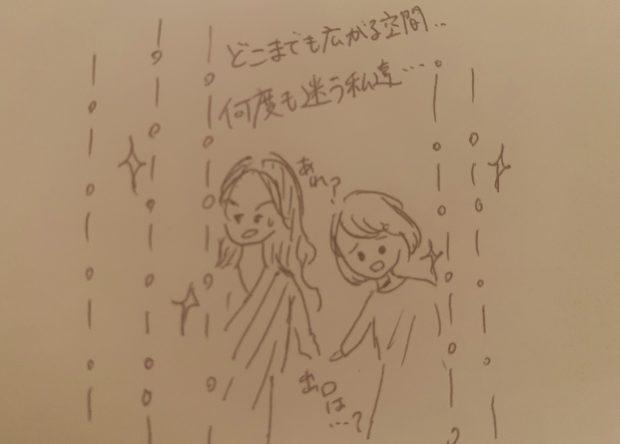 どこまでも広がる空間‥
何度も迷う私達…
あれ?
出口は…?